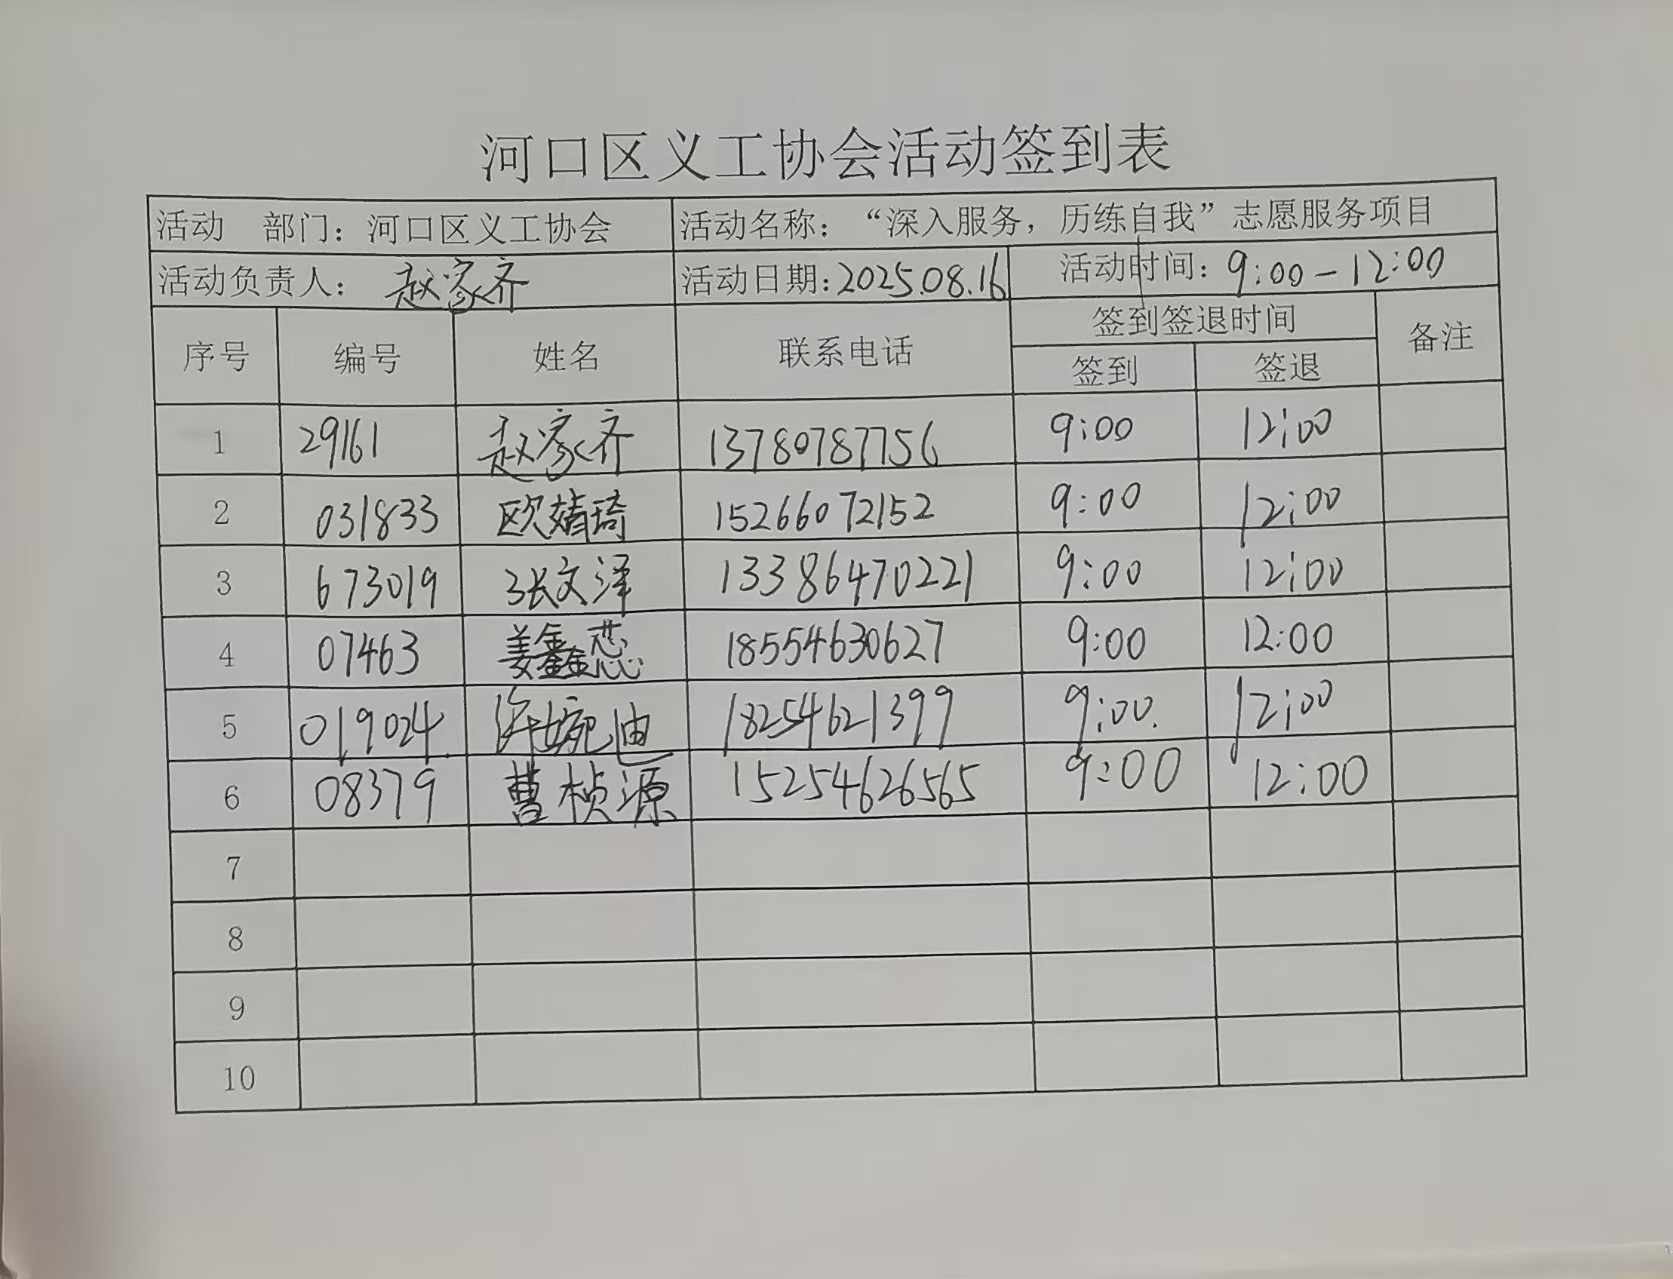 河口区义工协会活动签到表
活动 部门：河口区义工协会 活动名称：“深入服务，历练自我”志愿服务项目
活动负责人：赵家齐 活动日期：2025.08.16 活动时间：9:00-12:00
序号 编号 姓名 联系电话 签到签退时间 备注
签到 签退
1 29161 赵家齐 13780787756 9:00 12:00
2 031833 欧婧琦 15266072152 9:00 12:00
3 673019 张文泽 13386470221 9:00 12:00
4 07463 姜鑫蕊 18554630627 9:00 12:00
5 019024 许婉迪 18254621399 9:00 12:00
6 08379 曹桢源 15254626565 9:00 12:00
7
8
9
10